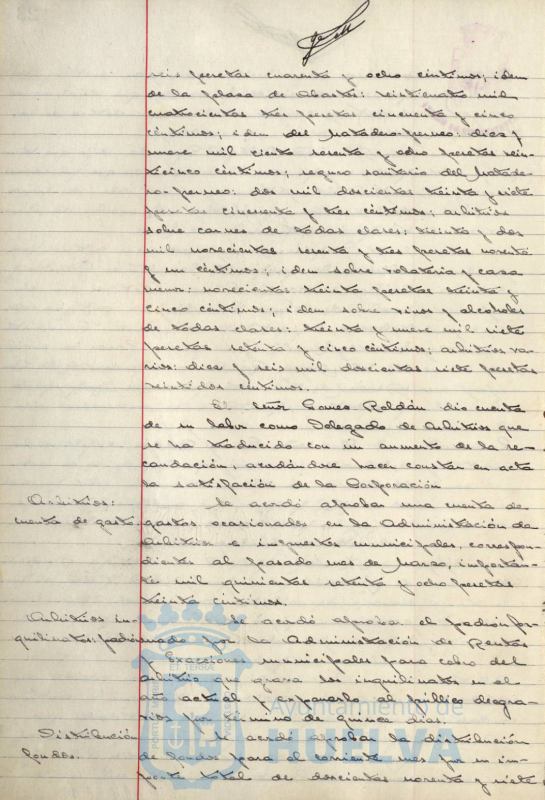 seis pesetas cuarenta y ocho céntimos; idem
de la plaza de Abastos: veinticuatro mil
cuatrocientas tres pesetas cincuenta y cinco
céntimos; idem del Matadero-permeo: diez y
nueve mil ciento sesenta y ocho pesetas vein-
ticinco céntimos; seguro sanitario del Matade-
ro-permeo: dos mil doscientas treinta y siete
pesetas cincuenta y tres céntimos; arbitrios
sobre carnes de todas clases: treinta y dos
mil novecientas sesenta y tres pesetas noventa
y un céntimos; idem sobre volatería y caza
menor: novecientas treinta pesetas treinta y
cinco céntimos; idem sobre vinos y alcoholes
de todas clases: treinta y nueve mil siete
pesetas setenta y cinco céntimos; arbitrios va-
rios: diez y seis mil doscientas siete pesetas
veintidos céntimos.
El señor Gomez Roldán dio cuenta
de su labor como Delegado de Arbitrios que
se ha traducido con un aumento de la re-
caudación, acordándose hacer constar en acta
la satisfacción de la Corporación
Arbitrios: Se acordó aprobar una cuenta de
cuenta de gastos. gastos ocasionados en la Administración de
Arbitrios e impuestos municipales, correspon-
dientes al pasado mes de Marzo, importan-
te mil quinientas setenta y ocho pesetas
treinta céntimos.
Arbitrios in- Se acordó aprobar el padrón for-
quilinatos: padrón mado por la Administración de Rentas
y Exacciones municipales para cobro del
arbitrio que grava los inquilinatos en el
año actual y exponerlo al público a efectos
por término de quince días.
Distribución Se acordó aprobar la distribución
fondos. de fondos para el corriente mes por un im-
porte total de doscientas noventa y siete
Ayuntamiento de
HUELVA